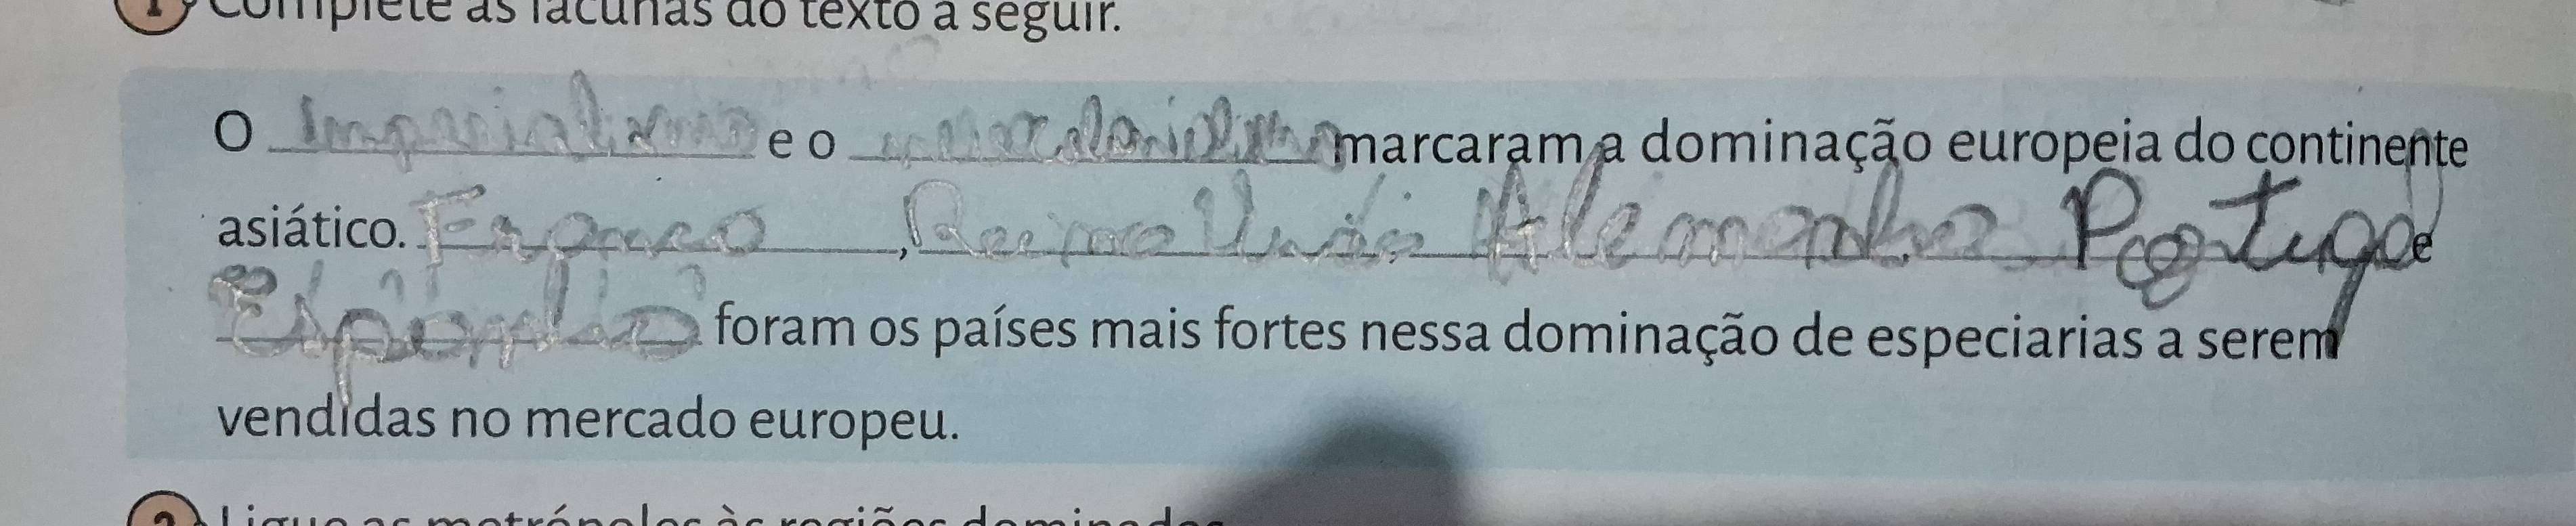 1 Complete as lacunas do texto a seguir.
O Imperialismo e o neocolonialismo marcaram a dominação europeia do continente
asiático. França, Reino Unido, Alemanha Portugal e
Espanha foram os países mais fortes nessa dominação de especiarias a serem
vendidas no mercado europeu.
2 Ligue as metrópoles às regiões dominadas